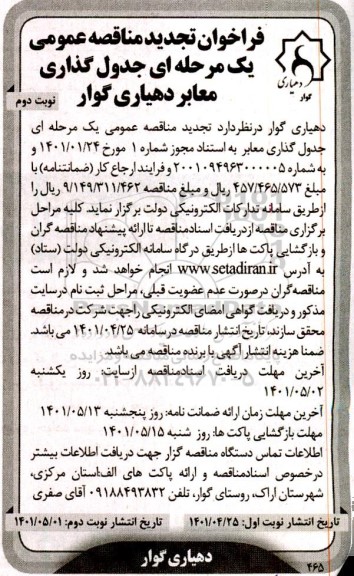 فراخوان تجدید مناقصه عمومی
یک مرحله ای جدول گذاری
معابر دهیاری گوار
نوبت دوم
دهیاری
گوار
دهیاری گوار درنظردارد تجدید مناقصه عمومی یک مرحله ای
جدول گذاری معابر به استناد مجوز شماره ۱ مورخ ۱۴۰۱/۰۱/۲۴ و
به شماره ۲۰۰۱۰۹۴۹۶۳۰۰۰۰۰۵ و فرایند ارجاع کار (ضمانتنامه) با
مبلغ ۴۵۷/۴۶۵/۵۷۳ ریال و مبلغ مناقصه ۹/۱۴۹/۳۱۱/۴۶۲ ریال را
ازطریق سامانه تدارکات الکترونیکی دولت برگزار نماید. کلیه مراحل
برگزاری مناقصه از دریافت اسنادمناقصه تا ارائه پیشنهاد مناقصه گران
و بازگشایی پاکت ها ازطریق درگاه سامانه الکترونیکی دولت (ستاد)
به آدرس www.setadiran.ir انجام خواهد شد و لازم است
مناقصه گران درصورت عدم عضویت قبلی، مراحل ثبت نام درسایت
مذکور و دریافت گواهی امضای الکترونیکی را جهت شرکت در مناقصه
محقق سازند، تاریخ انتشار مناقصه در سامانه ۱۴۰۱/۰۴/۲۵ می باشد.
ضمنا هزینه انتشار آگهی با برنده مناقصه می باشد.
آخرین مهلت دریافت اسنادمناقصه ازسایت: روز یکشنبه
۱۴۰۱/۰۵/۰۲
آخرین مهلت زمان ارائه ضمانت نامه: روز پنجشنبه ۱۴۰۱/۰۵/۱۳
مهلت بازگشایی پاکت ها: روز شنبه ۱۴۰۱/۰۵/۱۵
اطلاعات تماس دستگاه مناقصه گزار جهت دریافت اطلاعات بیشتر
درخصوص اسنادمناقصه و ارائه پاکت های الف:استان مرکزی،
شهرستان اراک، روستای گوار، تلفن ۰۹۱۸۸۴۹۳۸۳۲ آقای صفری
تاریخ انتشار نوبت اول: ۱۴۰۱/۰۴/۲۵ تاریخ انتشار نوبت دوم: ۱۴۰۱/۰۵/۰۱
دهیاری گوار
۴۶۵